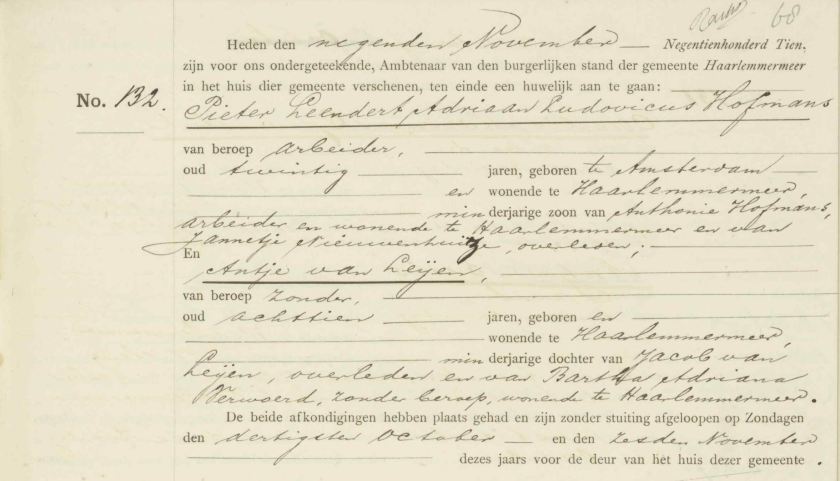 68
Heden den negenden November Negentienhonderd Tien,
zijn voor ons ondergeteekende, Ambtenaar van den burgerlijken stand der gemeente Haarlemmermeer
in het huis dier gemeente verschenen, ten einde een huwelijk aan te gaan:
No. 132.
Pieter Leendert Adriaan Ludovicus Hofmans
van beroep arbeider,
oud twintig jaren, geboren te Amsterdam
en wonende te Haarlemmermeer,
minderjarige zoon van Anthonie Hofmans,
arbeider en wonende te Haarlemmermeer en van
Jannetje Nieuwenhuitze, overleden;
En
Antje van Leijen,
van beroep zonder,
oud achttien jaren, geboren en
wonende te Haarlemmermeer,
minderjarige dochter van Jacob van
Leijen, overleden en van Bartha Adriana
Verwoerd, zonder beroep, wonende te Haarlemmermeer.
De beide afkondigingen hebben plaats gehad en zijn zonder stuiting afgeloopen op Zondagen
den dertigsten October en den zesden November
dezes jaars voor de deur van het huis dezer gemeente.